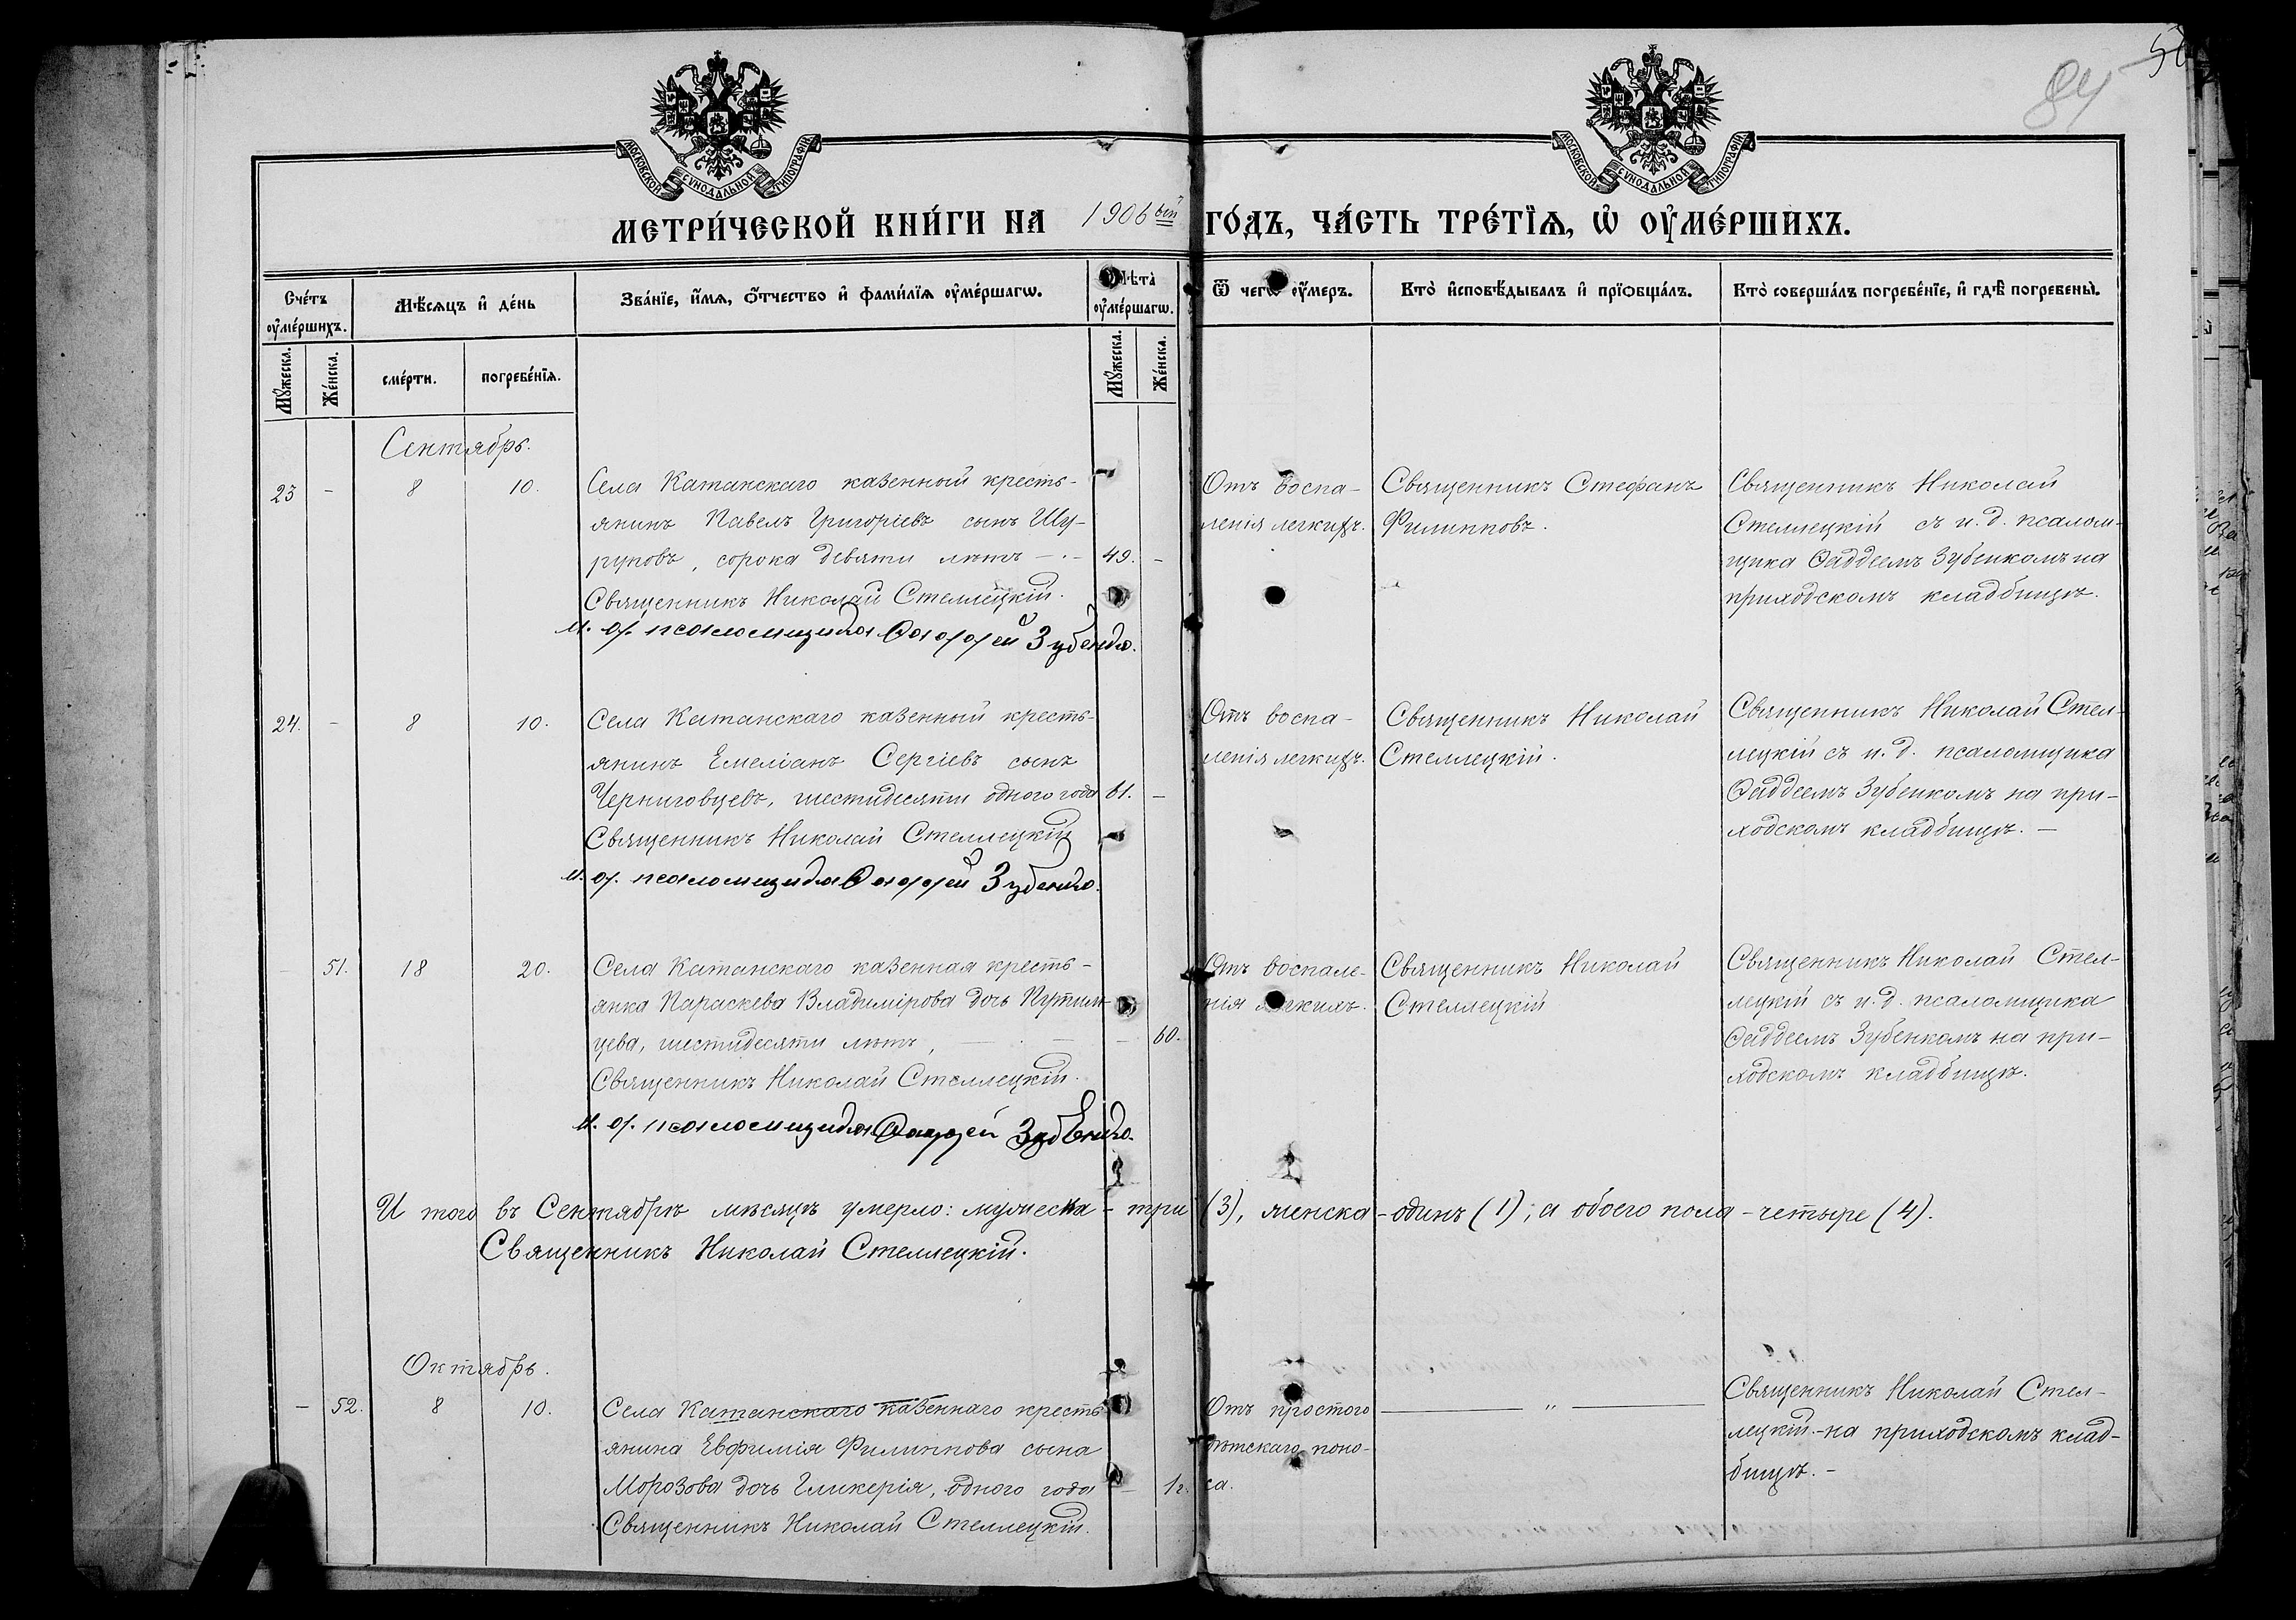 84
МОСКОВСКОЙ СѴНОДАЛЬНОЙ ТИПОГРАФІИ
МОСКОВСКОЙ СѴНОДАЛЬНОЙ ТИПОГРАФІИ
МЕТРИ́ЧЕСКОЙ КНИ́ГИ НА 1906 ый ГО́ДЪ, ЧА́СТЬ ТРЕ́ТЇѦ, Ѡ҆ ОУ҆МЕ́РШИХЪ.
Сче́тъ оу҆ме́ршихъ.
Мѣ́сѧцъ и҆ де́нь
Зва́нїе, и҆́мѧ, ѻ҆́тчество и҆ фами́лїѧ оу҆ме́ршагѡ.
Лѣта̀ оу҆ме́ршагѡ.
Ѿ чегѡ̀ оу҆́меръ.
Кто̀ и҆сповѣ́дывалъ и҆ прїѡбща́лъ.
Кто̀ соверша́лъ погребе́нїе, и҆ гдѣ̀ погребены̀.
Мꙋ́жеска.
Же́нска.
сме́рти.
погребе́нїѧ.
Мꙋ́жеска.
Же́нска.
Сентябрь.
23 - 8 10.
Села Катанскаго казенный кресть-
янинъ Павелъ Григоріевъ сынъ Шу-
руповъ, сорока девяти лѣтъ - . - 49. -
Священникъ Николай Стеллецкій.
и. д. псаломщика Ѳаддей Зубенко.
Отъ воспа-
ленія легкихъ.
Священникъ Стефанъ
Филипповъ.
Священникъ Николай
Стеллецкій съ и. д. псалом-
щика Ѳаддеемъ Зубенкомъ на
приходскомъ кладбищѣ.
24. - 8 10.
Села Катанскаго казенный кресть-
янинъ Емеліанъ Сергіевъ сынъ
Черниговцевъ, шестидесяти одного года 61. -
Священникъ Николай Стеллецкій
и. д. псаломщика Ѳаддей Зубенко.
Отъ воспа-
ленія легкихъ.
Священникъ Николай
Стеллецкій.
Священникъ Николай Стел-
лецкій съ и. д. псаломщика
Ѳаддеемъ Зубенкомъ на при-
ходскомъ кладбищѣ. -
- 51. 18 20.
Села Катанскаго казенная кресть-
янка Параскева Владимірова дочь Путим-
цева, шестидесяти лѣтъ, - 60.
Священникъ Николай Стеллецкій.
и. д. псаломщика Ѳаддей Зубенко.
Отъ воспале-
нія легкихъ.
Священникъ Николай
Стеллецкій
Священникъ Николай Стел-
лецкій съ и. д. псаломщика
Ѳаддеемъ Зубенкомъ на при-
ходскомъ кладбищѣ.
И того въ Сентябрѣ мѣсяцѣ умерло: мужеска - три (3), женска - одинъ (1); а обоего пола - четыре (4).
Священникъ Николай Стеллецкій.
Октябрь.
- 52. 8 10.
Села Катанскаго казеннаго кресть-
янина Евфимія Филиппова сына
Морозова дочь Гликерія, одного года - 1 г.
Священникъ Николай Стеллецкій.
Отъ простого
дѣтскаго поно-
са.
"
Священникъ Николай Стел-
лецкій - на приходскомъ клад-
бищѣ. -